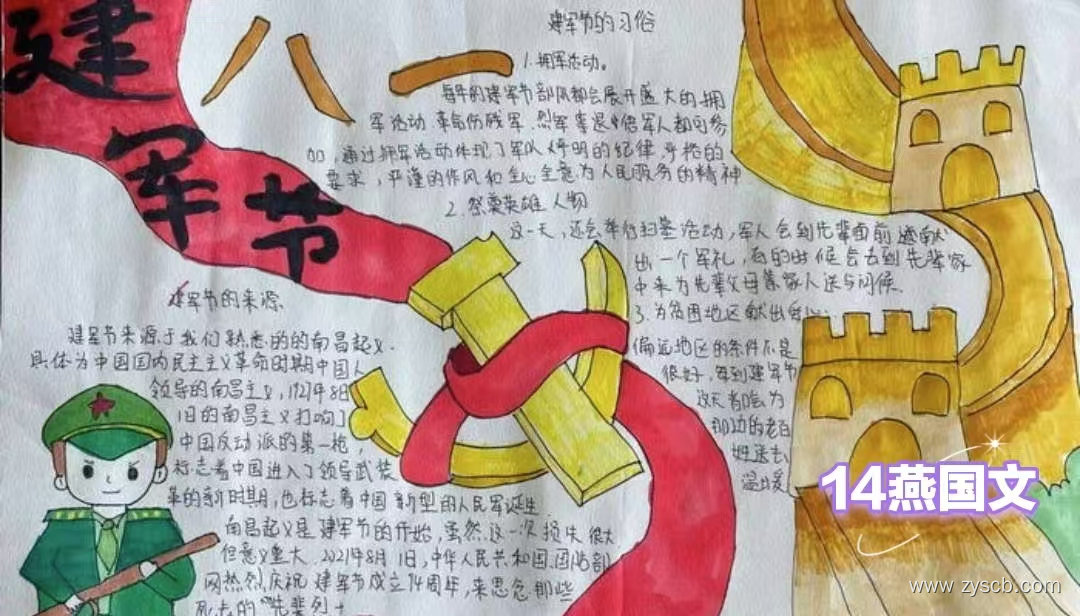 建军节
八一
建军节的习俗
1.拥军活动。
每年的建军节部队都会展开盛大的拥
军活动.革命伤残军.烈军
加,通过拥军活动体现了军队 的纪律 严格的
要求,严谨的作风和全心全意为人民服务的精神
2.祭奠英雄人物
这一天,还会举行扫墓活动,军人会到先辈面前 献
出一个军礼,有的时候会去到先辈家
中来为先辈父母亲家人送与问候.
3.为贫困地区献出
偏远地区的条件不是
很好,每到建军节
这天都会为
那边的老百
姓送去
温暖
建军节的来源.
建军节来源于我们熟悉的的南昌起义.
具体为中国国内民主主义革命时期中国人
领导的南昌主义,1927年8月
1日的南昌主义打响了
中国反动派的第一枪,
标志着中国进入了领导武装
革的新时期,也标志着中国新型的人民军诞生
南昌起义是建军节的开始,虽然这一次损失很大
但意义重大.2021年8月1日,中华人民共和国国防部
网热烈庆祝建军节成立94周年,来思念那些
死去的先辈烈士
14燕国文
www.zyscb.com